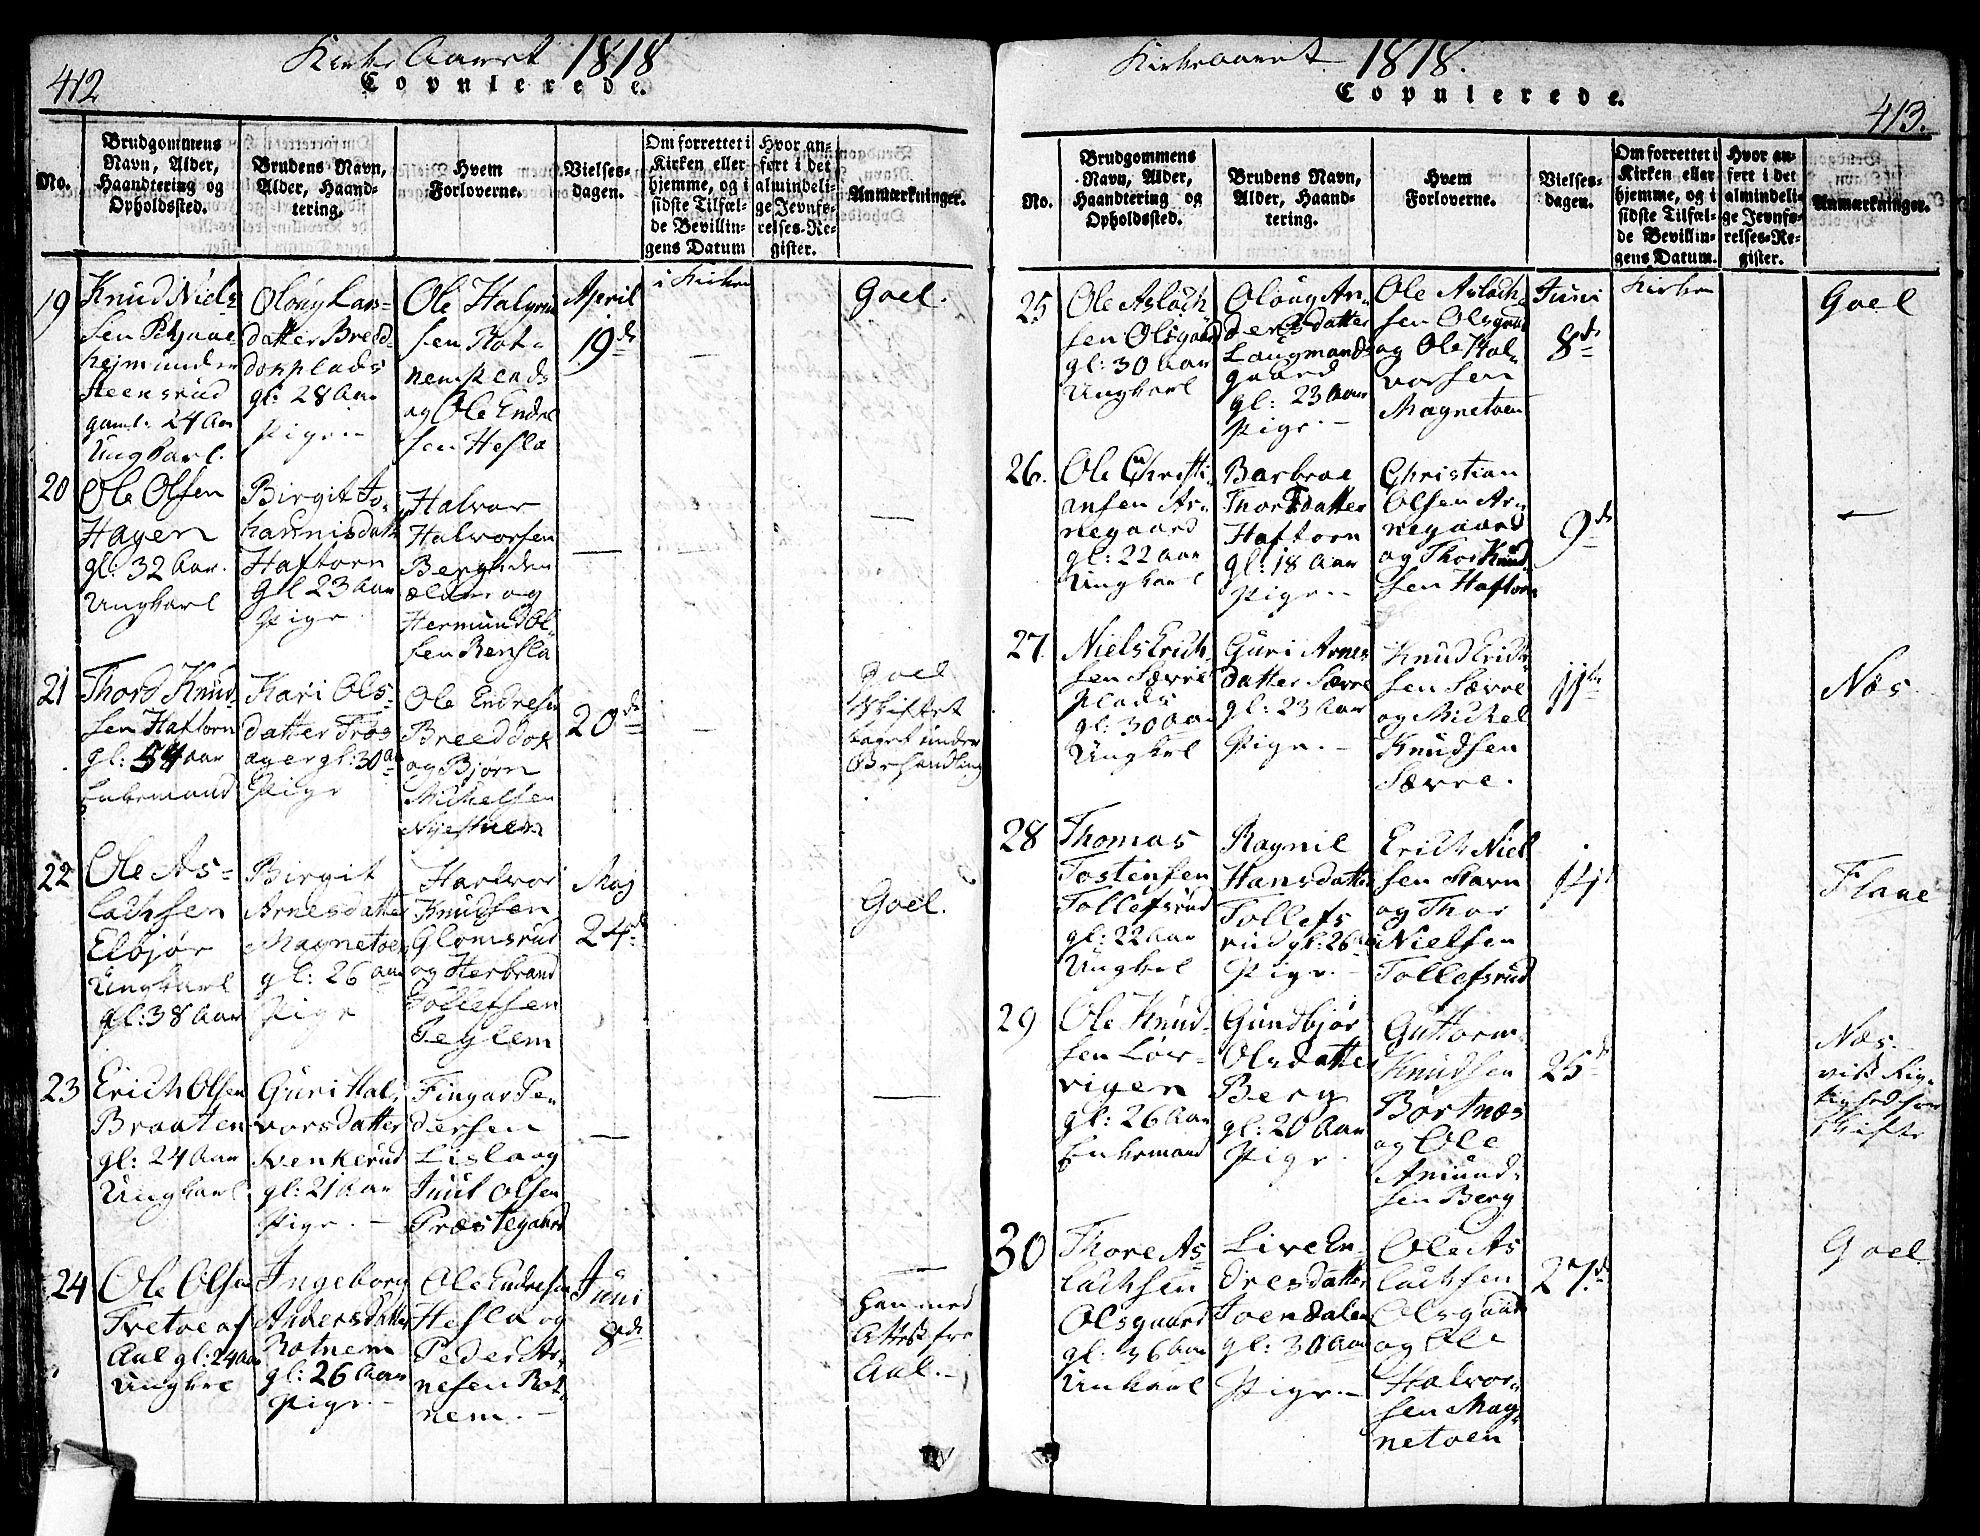 412
Kirke Aaret 1818
Copulerede.
No.
Brudgommens
Navn, Alder,
Haandtering og
Opholdssted.
Brudens Navn,
Alder, Haand-
tering.
Hvem
Forloverne.
Vielses-
dagen.
Om forrettet i
Kirken eller
hjemme, og i
sidste Tilfæl-
de Bevillin-
gens Datum
Hvor an-
ført i det
almindeli-
ge Jevnfø-
relses-Re-
gister.
Anmærkninger.
19
Knud Niels
sen
hejm under
Heensrud
gaml. 24 Aar
Ungkarl.
Oloug Lars-
datter Bred-
dokplads
gl: 28 Aar
Pige
Ole Halgrim
sen Rot-
nemsends
og Ole Endre
sen Hesla
April
19de
i Kirken
Goel.
20
Ole Olsen
Hagen
gl: 32 Aar.
Ungkarl
Birgit Jo-
hannisdatt
Haftorn
Gl 23 Aar
Pige
Halvor
Halvorsen
Berg den
ældre og
Hermund Ol-
sen Rensla
—
—
21
Thord Knud-
sen Haftorn
gl: 54 aar
Enkemand
Kari Ols-
datter Trøs
ager gl: 30 Aa
Pige
Ole Endresen
Breeddok
og Bjørn
Mikelsen
20de
—
Goel
Skiftet
taget under
Behandling
22
Ole As-
lachsen
Elbjør
Ungkarl
gl: 38 Aar
Birgit
Arnesdatter
Magnetoen
gl: 26 aar
Pige
Hallvor
Knudsen
Glomsrud
og Herbrand
Tollefsen
Teglem
Maj
24de
Goel.
23
Erich Olsen
Braaten
gl: 24 Aar
Ungkarl
Guri Hal-
vorsdatter
Svenkerud
gl: 21 Aar
Pige. —
Fingar Pe-
dersen
Lisla og
Juul Olsen
Præstegaard
—
—
24
Ole Olsen
Tretoe af
Aal gl: 24 Aar
Ungkrl
Ingeborg
Andersdatter
Rotnem
gl: 26 Aar
Pige. —
Ole Endresen
Hesla og
Peder Ar-
nesen Rot-
nem. —
Juni
8de
—
han med
Attest fra
Aal. —
Kirkeaaret 1818.
Copulerede.
413.
No.
Brudgommens
Navn, Alder,
Haandtering og
Opholdssted.
Brudens Navn,
Alder, Haand-
tering.
Hvem
Forloverne.
Vielses-
dagen.
Om forrettet i
Kirken eller
hjemme, og i
sidste Tilfæl-
de Bevillin-
gens Datum.
Hvor an-
ført i det
almindeli-
ge Jevnfø-
relses-Re-
gister.
Anmærkninger.
25
Ole Aslach
sen Olsgaard
gl: 30 Aar
Ungkarl
Oloug An-
dersdatter
Laugmands
gaard
gl: 23 Aar
Pige. —
Ole Aslach-
sen Olsgaard
og Ole Hal-
vorsen
Magnetoen
Juni
8de
Kirken
Goel
26.
Ole Christi-
ansen Ar-
negaard
gl: 22 Aar
Ungkarl
Barbroe
Thorsdatter
Haftorn
gl: 18 Aar
Pige. —
Christian
Olsen Ar-
negaard
og Thor Knud
sen Haftorn
9de
—
27.
Niels Erich-
sen Særre
plads
gl: 30 Aar
Ungkrl
Guri Arnes
datter Særre
gl: 23 Aar
Pige. —
Knud Erich-
sen Særre
og Mikel
Knudsen
Særre.
11te
Næs
28
Thomas
Tostensen
Tollefsrud
gl: 22 Aar
Ungkrl
Ragnil
Hansdatter
Tollefs
rud gl: 26 Aa
Pige. —
Erich Niel
sen Starn
og Thor
Nielsen
Tollefsrud
14de
Flaae
29
Ole Knud-
sen Løv-
vigen
gl: 26 Aar
Enkemand
Gundbjør
Olsdatter
Berg
gl: 20 Aar
Pige.
Guttorm
Knudsen
Börtnæs
og Ole
Amund-
sen Berg
25de
Næs.
30
Thore As-
lachsen
Olsgaard
gl: 36 Aar
Unkarl
Live En-
dresdatter
Joendalen
gl: 30 Aar
Pige. —
Ole As
lachsen
Olsgaard
og Ole
Halvor-
sen Mag-
netoen
27de
Goel